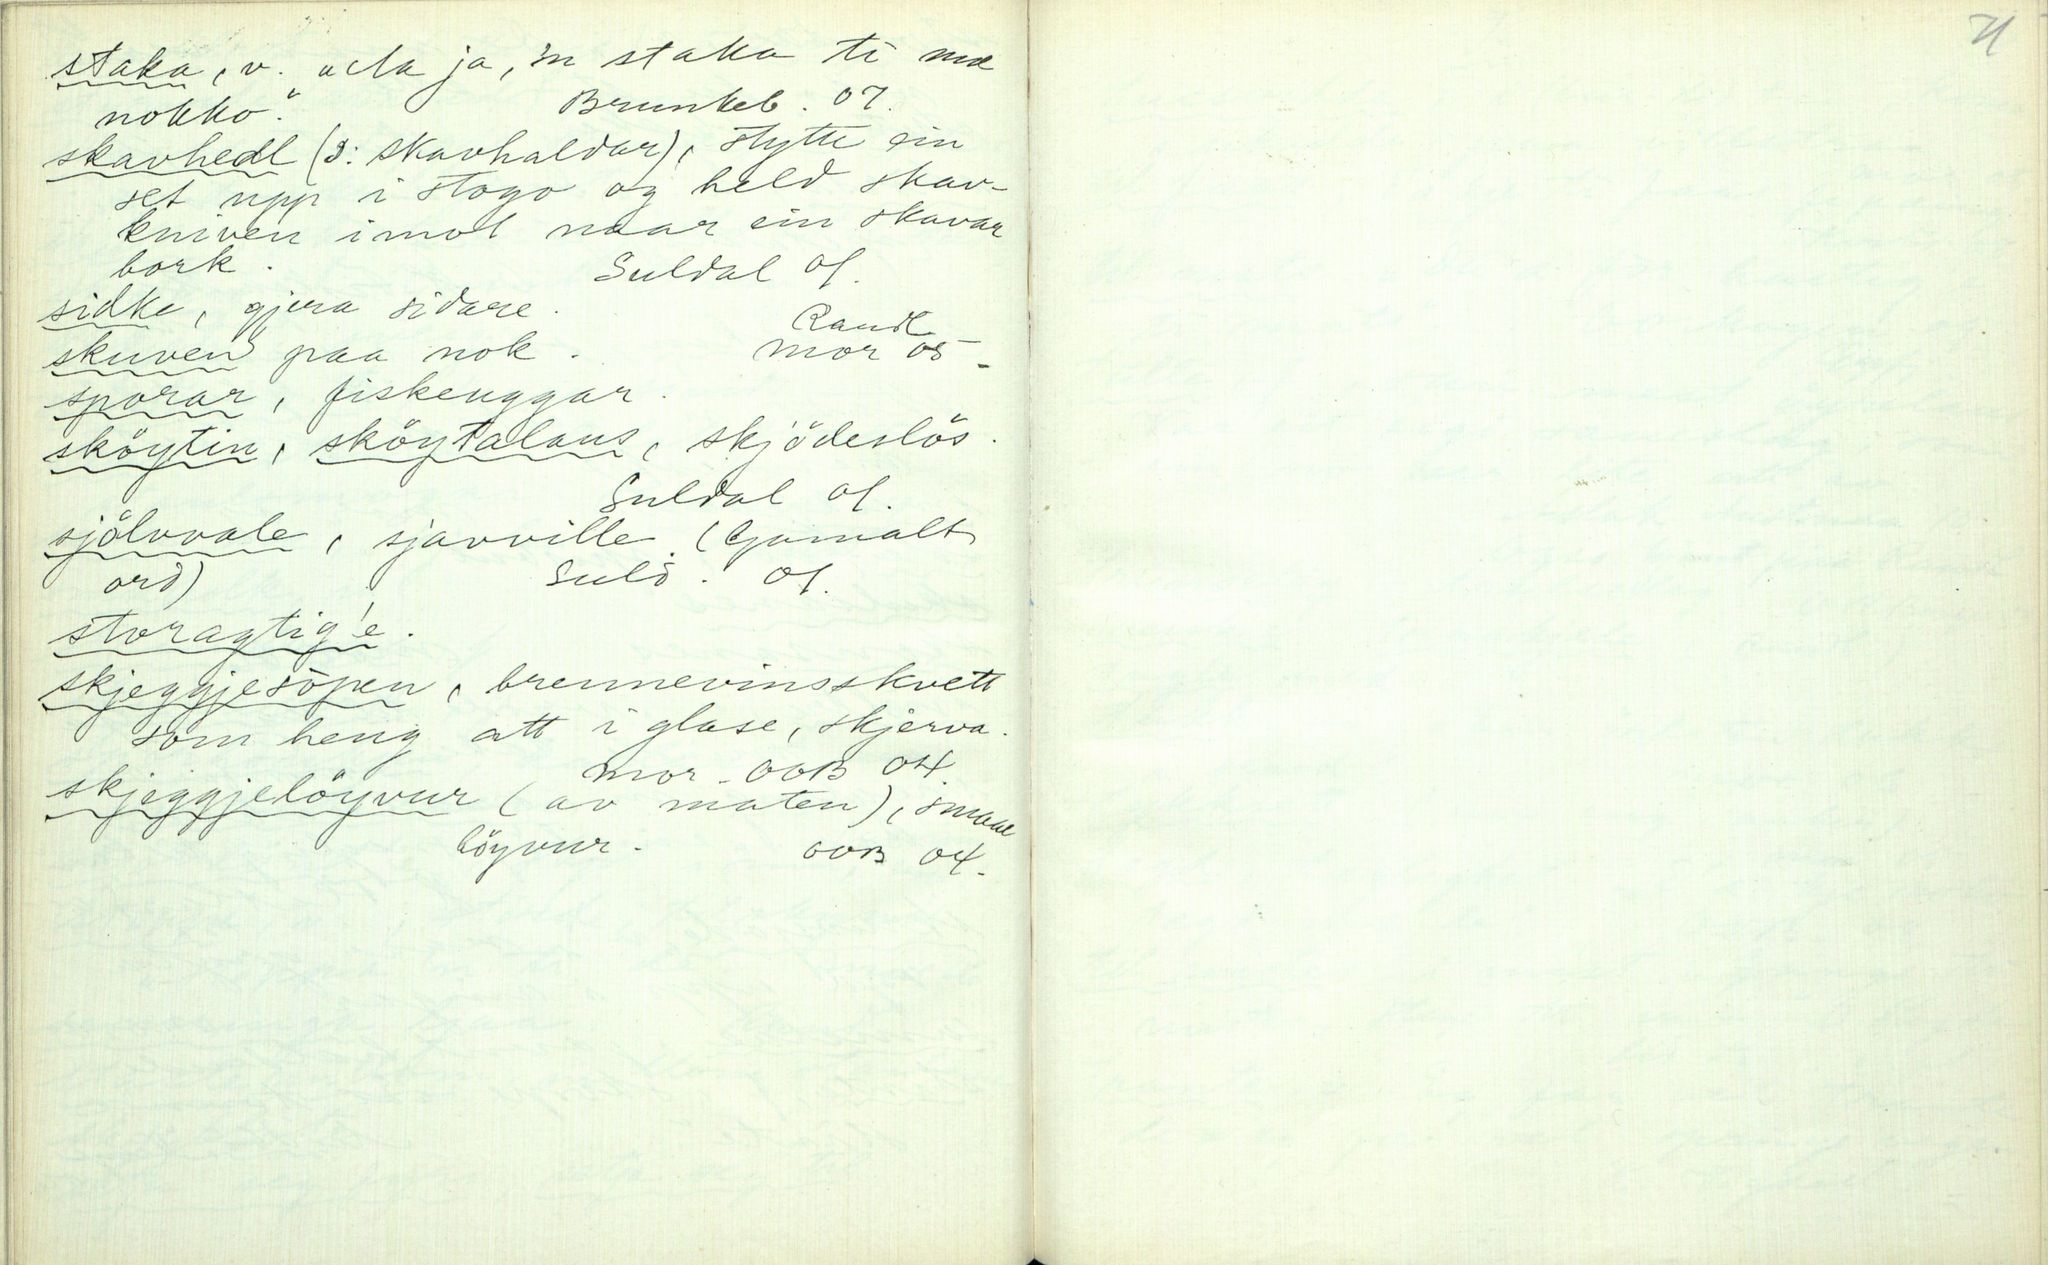 staka, v. "da ja, 'n staka ti mæ
nokko". Brunkeb. 07.
skavhedl (ɔ: skavhaldar), stytte ein
set upp i stogo og held skav-
kniven imot naar ein skavar
bork. Suldal 01.
sidke, gjera sidare.
Randi
skuven paa nok. mor 05.
sporar, fiskeuggar.
sköytin, sköytalaus, skjödeslös.
Suldal 01.
sjölvvale, sjavville. (Gamalt
ord) Suld. 01.
storagtig'e.
skjeggjesöpen, brennevinsskvett
som heng att i glase, skjerva.
mor. OOB 04.
skjeggjelöyvur (av maten), smaae
löyvur. OOB 04.
71